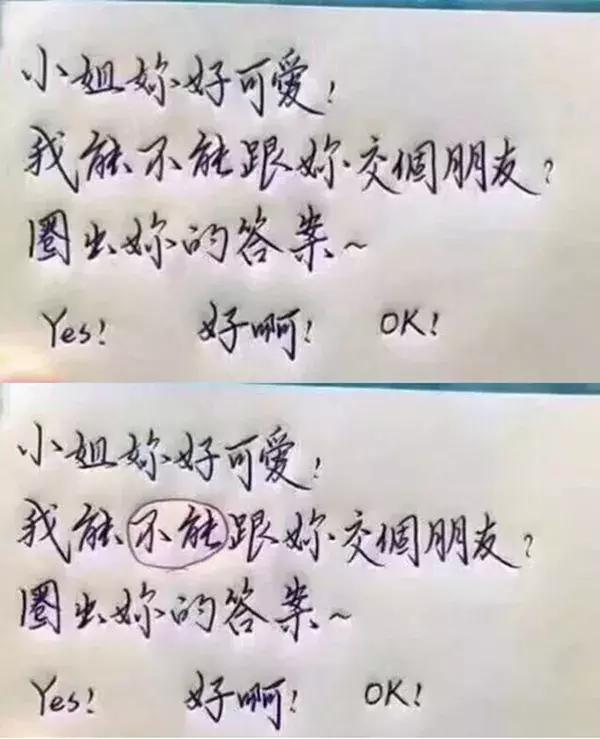 小姐妳好可愛！
我能不能跟妳交個朋友？
圈出妳的答案～
Yes！ 好啊！ OK！
小姐妳好可愛！
我能不能跟妳交個朋友？
圈出妳的答案～
Yes！ 好啊！ OK！